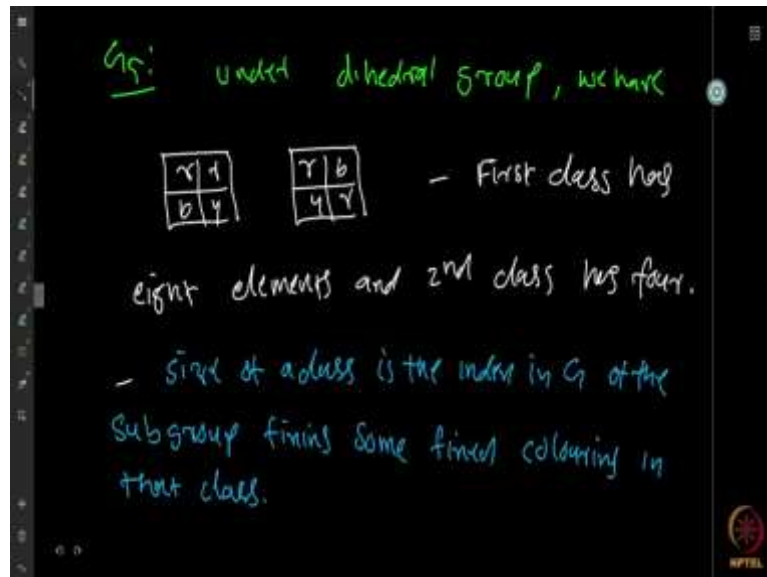 G5: under dihedral group, we have
r r r b - First class has
b y y r
eight elements and 2nd class has four.
- size of a class is the index in G of the
subgroup fixing some fixed colouring in
that class.
NPTEL